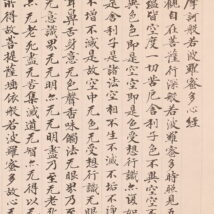 摩訶般若波羅蜜多心經
觀自在菩薩行深般若波羅蜜多時照見
蘊皆空度一切苦厄舍利子色不異空空
異色色即是空空即是色受想行識亦復如
是舍利子是諸法空相不生不滅不垢不淨
不增不減是故空中无色无受想行識无眼
耳鼻舌身意无色聲香味觸法无眼界乃
至无意識界无无明亦无无明盡乃至无老死
亦无老死盡无苦集滅道无智亦无得以无
所得故菩提薩埵依般若波羅蜜多故心无